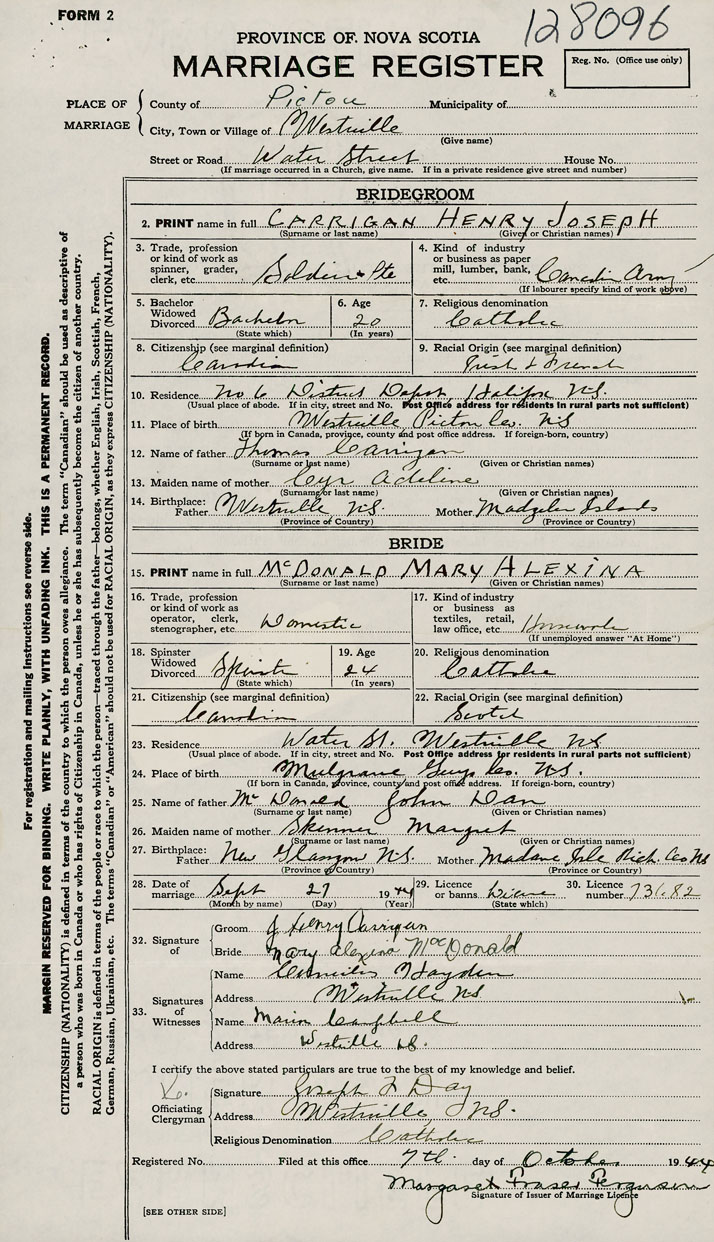 FORM 2
128096
PROVINCE OF NOVA SCOTIA
MARRIAGE REGISTER
Reg. No. (Office use only)
PLACE OF MARRIAGE
County of Pictou Municipality of
City, Town or Village of Westville
(Give name)
Street or Road Water Street House No.
(If marriage occurred in a Church, give name. If in a private residence give street and number)
BRIDEGROOM
2. PRINT name in full CARRIGAN HENRY JOSEPH
(Surname or last name) (Given or Christian names)
3. Trade, profession or kind of work as spinner, grader, clerk, etc. Soldier Pte
4. Kind of industry or business as paper mill, lumber, bank, etc. Canadian Army
(If labourer specify kind of work above)
5. Bachelor Widowed Divorced Bachelor
(State which)
6. Age 20
(In years)
7. Religious denomination Catholic
8. Citizenship (see marginal definition) Canadian
9. Racial Origin (see marginal definition) Irish & French
10. Residence No 6 District Depot, Halifax N.S.
(Usual place of abode. If in city, street and No. Post Office address for residents in rural parts not sufficient)
11. Place of birth Westville Pictou Co. NS
(If born in Canada, province, county and post office address. If foreign-born, country)
12. Name of father Thomas Carrigan
(Surname or last name) (Given or Christian names)
13. Maiden name of mother Cyr Adeline
(Surname or last name) (Given or Christian names)
14. Birthplace: Father Westville N.S. Mother Madgelen Islands
(Province of Country) (Province or Country)
BRIDE
15. PRINT name in full McDONALD MARY ALEXINA
(Surname or last name) (Given or Christian names)
16. Trade, profession or kind of work as operator, clerk, stenographer, etc. Domestic
17. Kind of industry or business as textiles, retail, law office, etc. Housework
(If unemployed answer "At Home")
18. Spinster Widowed Divorced Spinster
(State which)
19. Age 24
(In years)
20. Religious denomination Catholic
21. Citizenship (see marginal definition) Canadian
22. Racial Origin (see marginal definition) Scotch
23. Residence Water St. Westville NS
(Usual place of abode. If in city, street and No. Post Office address for residents in rural parts not sufficient)
24. Place of birth Mulgrave Guys Co. N.S.
(If born in Canada, province, county and post office address. If foreign-born, country)
25. Name of father McDonald John Dan
(Surname or last name) (Given or Christian names)
26. Maiden name of mother Skinner Margret
(Surname or last name) (Given or Christian names)
27. Birthplace: Father New Glasgow N.S. Mother Madame Isle Rich. Co NS
(Province of Country) (Province or Country)
28. Date of marriage Sept 27 1944
(Month by name) (Day) (Year)
29. Licence or banns
(State which)
30. Licence number 73682
32. Signature of
Groom J Henry Carrigan
Bride Mary Alexina MacDonald
33. Signatures of Witnesses
Name Cornelius Hayden
Address Westville NS
Name Marion Campbell
Address Westville NS.
I certify the above stated particulars are true to the best of my knowledge and belief.
Officiating Clergyman
Signature Joseph F Day
Address Westville, NS.
Religious Denomination Catholic
Registered No. Filed at this office 7th day of October 1944
Margaret Fraser Ferguson
Signature of Issuer of Marriage Licence
[SEE OTHER SIDE]
For registration and mailing instructions see reverse side.
MARGIN RESERVED FOR BINDING. WRITE PLAINLY, WITH UNFADING INK. THIS IS A PERMANENT RECORD.
CITIZENSHIP (NATIONALITY) is defined in terms of the country to which the person owes allegiance. The term "Canadian" should be used as descriptive of
a person who was born in Canada or who has rights of Citizenship in Canada, unless he or she has subsequently become the citizen of another country.
RACIAL ORIGIN is defined in terms of the people or race to which the person—traced through the father—belongs, whether English, Irish, Scottish, French,
German, Russian, Ukrainian, etc. The terms "Canadian" or "American" should not be used for RACIAL ORIGIN, as they express CITIZENSHIP (NATIONALITY).